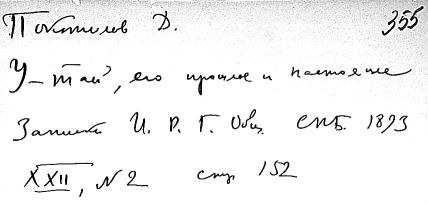 Покотилов Д. 355
У-тай, его прошлое и настоящее
Записки И. Р. Г. Общ. СПБ. 1893
XXII, N 2 стр 152